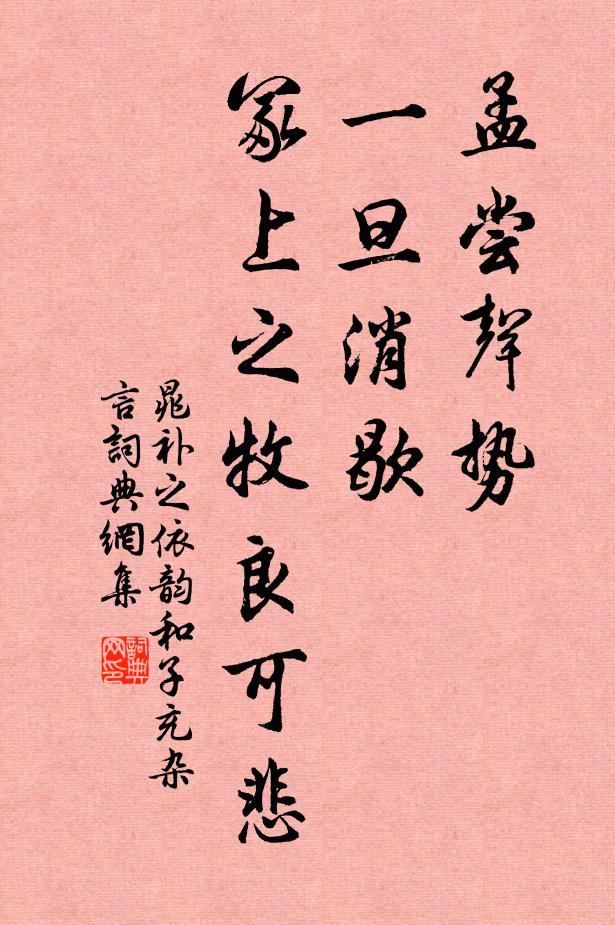 孟尝聲势
一旦消歇
冢上之牧良可悲
晁补之依韵和子充杂
言詞典網集
詞典
网印